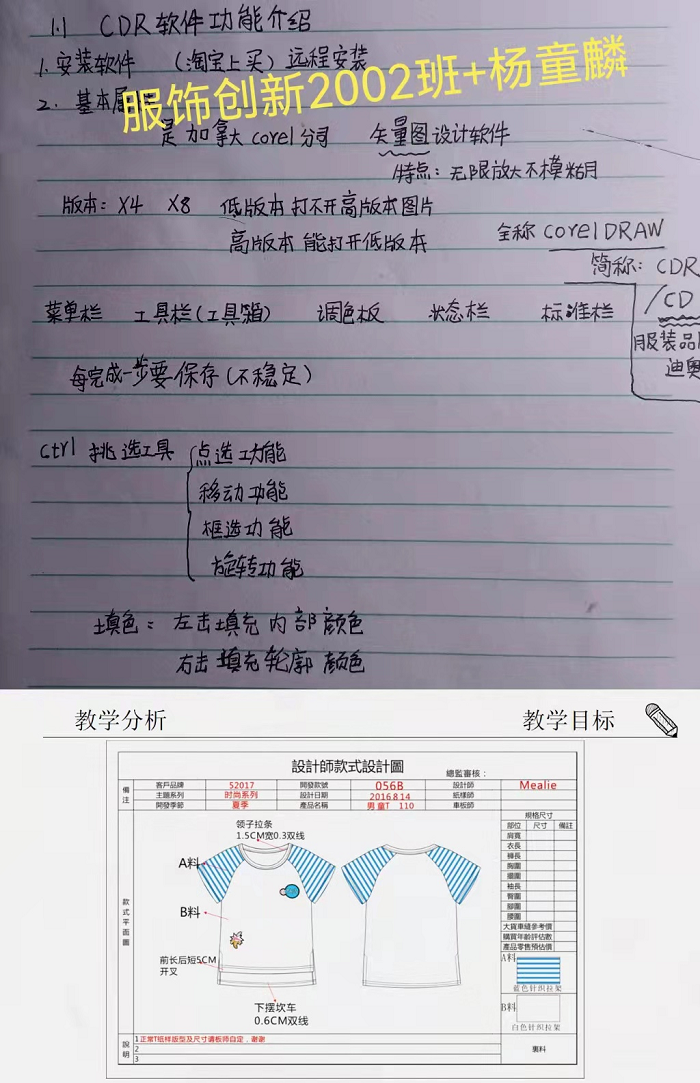 1.1 CDR软件功能介绍
1.安装软件 (淘宝上买)远程安装
2. 基本属
服饰创新2002班+杨童麟
是加拿大corel公司 矢量图设计软件
特点:无限放大不模糊
版本:X4 X8 低版本打不开高版本图片
高版本能打开低版本
全称 corelDRAW
简称:CDR
/CD
菜单栏 工具栏(工具箱) 调色板 状态栏 标准栏
服装品
迪奥
每完成一步要保存(不稳定)
ctrl 挑选工具
点选功能
移动功能
框选功能
旋转功能
填色:左击填充内部颜色
右击填充轮廓颜色
教学分析 教学目标
設計師款式設計圖
總監審核:
備注
客戶品牌 52017 開發款號 056B 設計師 Mealie
主題系列 时尚系列 設計日期 2016.8.14 紙樣師
開發季節 夏季 產品名稱 男童T 110 車板師
款式平面圖
领子拉条
1.5CM宽0.3双线
A料
B料
前长后短5CM
开叉
下摆坎车
0.6CM双线
規格尺寸
部位 尺寸 備註
肩寬
衣長
褲長
胸圍
擺圍
袖長
臀圍
腳圍
腰圍
大貨車縫參考價
購買年齡評估數
產品零售預估價
A料
蓝色针织拉架
B料
白色针织拉架
説明
1 正常T纸样版型及尺寸请板师自定,谢谢
2
3
裏料